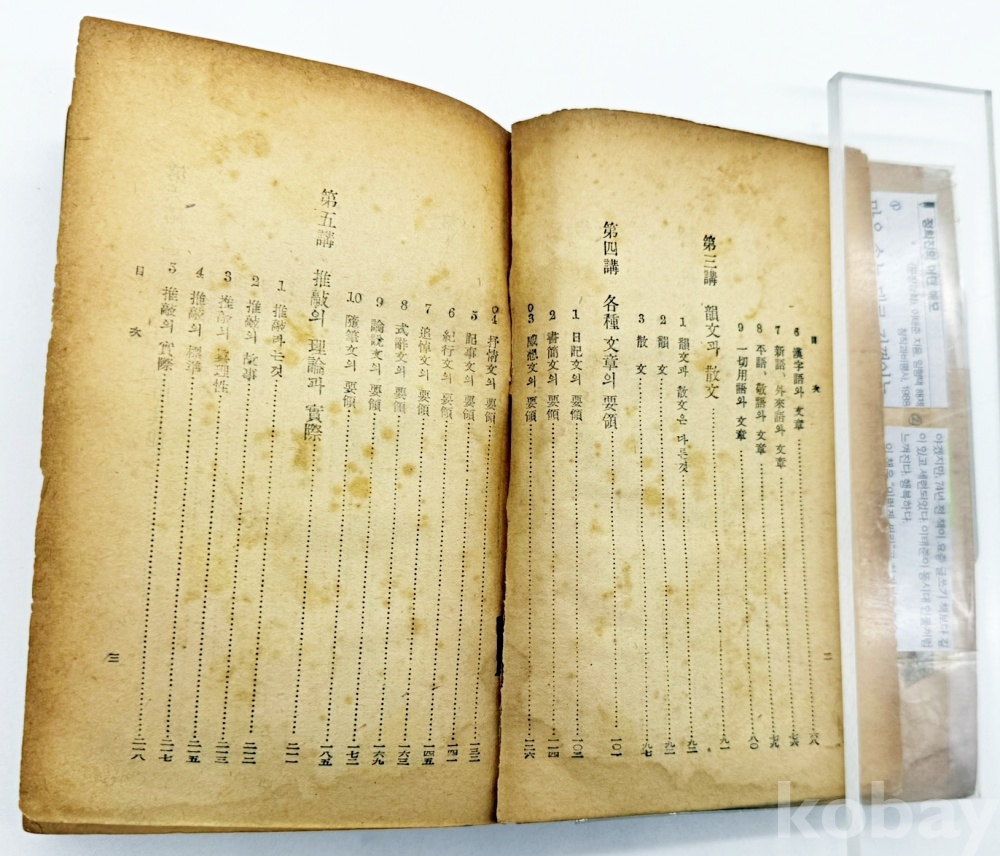 目 次
6 漢字語와 文章 六八
7 新語、外來語와 文章 七六
8 平語、敬語와 文章 七九
9 一切用語와 文章 八〇
第三講 韻文과 散文 九一
1 韻文과 散文은 다른것 九二
2 韻 文
3 散 文 九七
第四講 各種文章의 要領 一〇一
1 日記文의 要領
2 書簡文의 要領 一一四
3 感想文의 要領 一二六
二
4 抒情文의 要領 一三二
5 記事文의 要領 一四一
6 紀行文의 要領 一四五
7 追悼文의 要領 一六三
8 式辭文의 要領 一六九
9 論說文의 要領 一七二
10 隨筆文의 要領 一八五
第五講 推敲의 理論과 實際 二一一
1 推敲라는것
2 推敲의 故事
3 推敲의 眞理性 二一三
4 推敲의 標準 二一五
5 推敲의 實際 二一八
目 次
三
이 있고 세련되었다. 이태준이 동시대인물처럼
느껴진다. 행복하다.
kobay